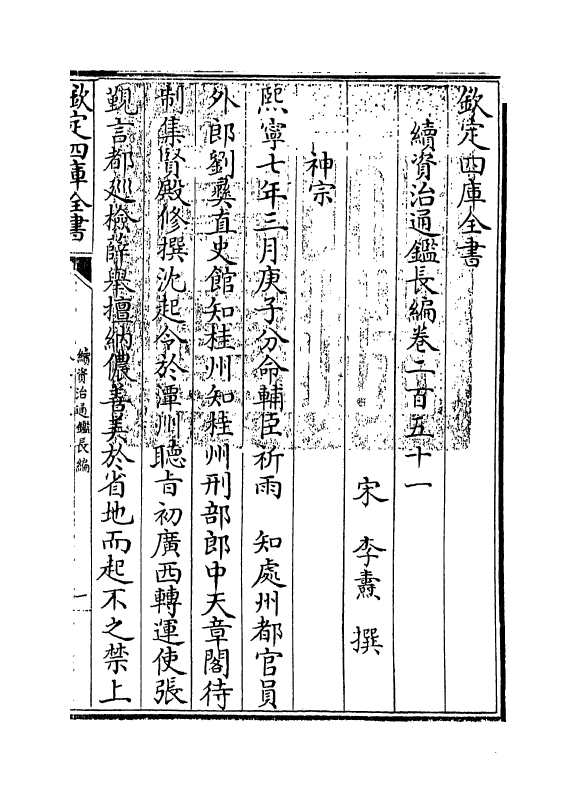 欽定四庫全書
續資治通鑑長編卷二百五十一
宋 李燾 撰
神宗
熙寧七年三月庚子分命輔臣祈雨 知處州都官員
外郎劉彞直史館知桂州知桂州刑部郎中天章閣待
制集賢殿修撰沈起令於潭州聽旨初廣西轉運使張
覲言都巡檢薛舉擅納儂善美於省地而起不之禁上
欽定四庫全書
續資治通鑑長編
一